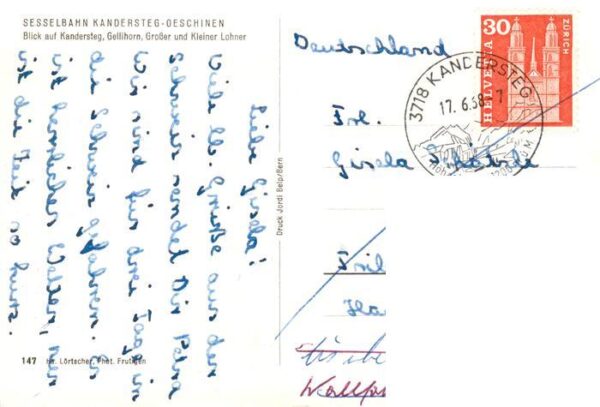 SESSELBAHN KANDERSTEG-OESCHINEN
Blick auf Kandersteg, Gellihorn, Großer und Kleiner Lohner
Liebe Gisela!
Viele lb. Grüße aus der
Schweiz sendet Dir
Wir sind für drei Tage in
die Schweiz gefahren. Es
ist herrliches Wetter, nur
ist die Zeit so kurz.
147 Phot. Frutigen
Druck Jordi Belp/Bern
Deutschland
Frl.
Gisela
30
HELVETIA
ZÜRICH
3718 KANDERSTEG
17. 6.68